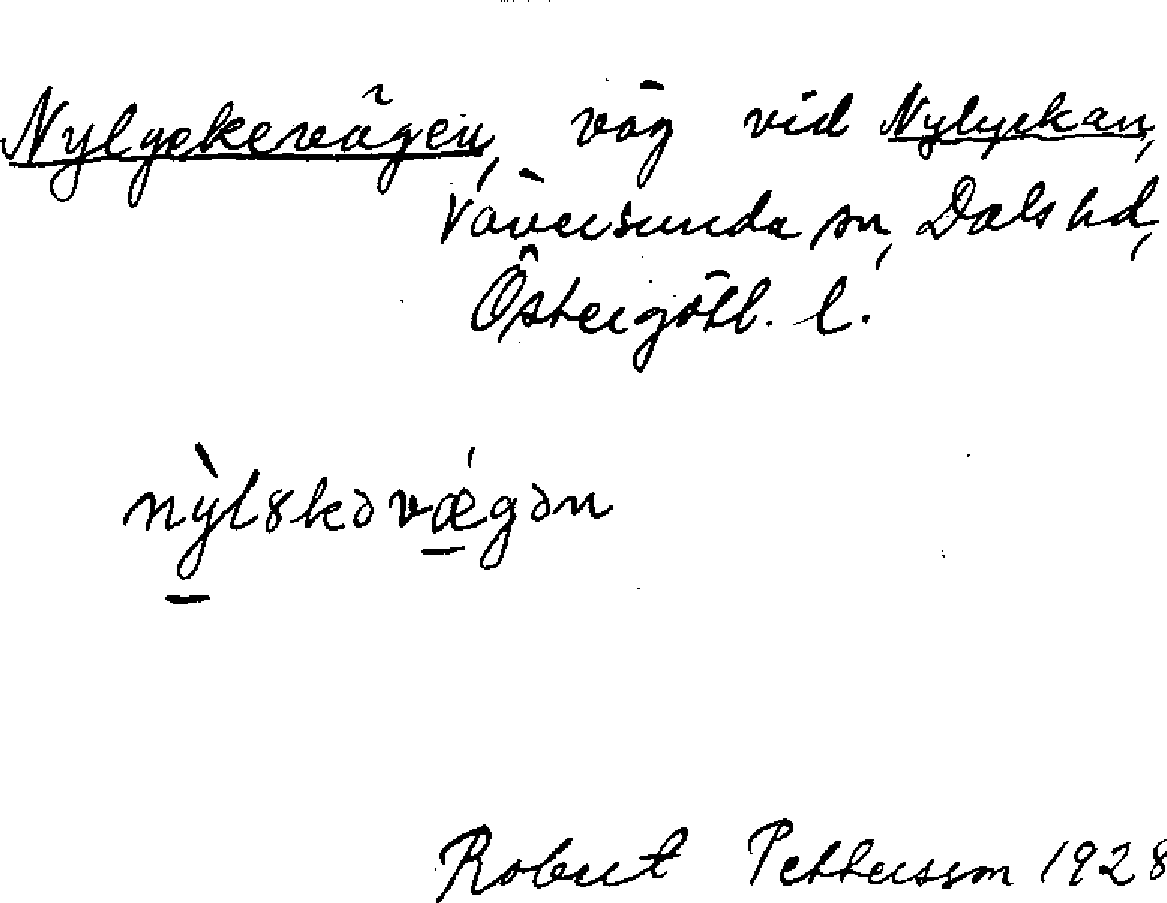 Nylyckevägen, väg vid Nylyckan,
Väversunda sn, Dals hd,
Östergötl. l.
nỳl8kəvǽgən
Robert Pettersson 1928